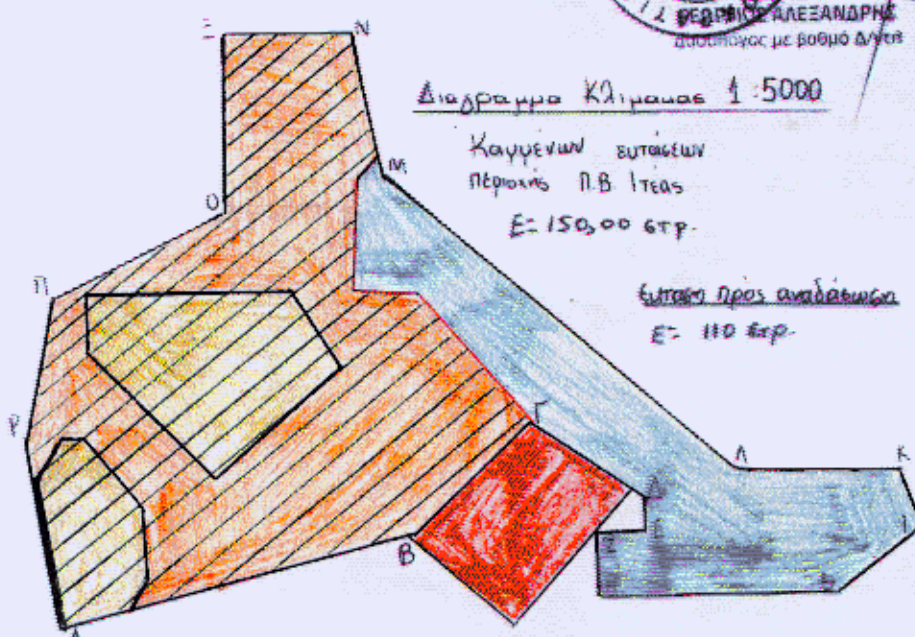 ΓΕΩΡΓΙΟΣ ΑΛΕΞΑΝΔΡΗΣ
Δασολόγος με βαθμό Δ/ντή
Διαγραμμα Κλιμακας 1:5000
Καμμένων εκτάσεων
Περιοχής Π.Β. Ιτέας
Ε= 150,00 στρ.
έκταση προς αναδάσωση
Ε= 110 στρ.
Ξ
Ν
Μ
Ο
Π
Ρ
Α
Β
Γ
Δ
Ε
Ζ
Λ
Κ
Ι